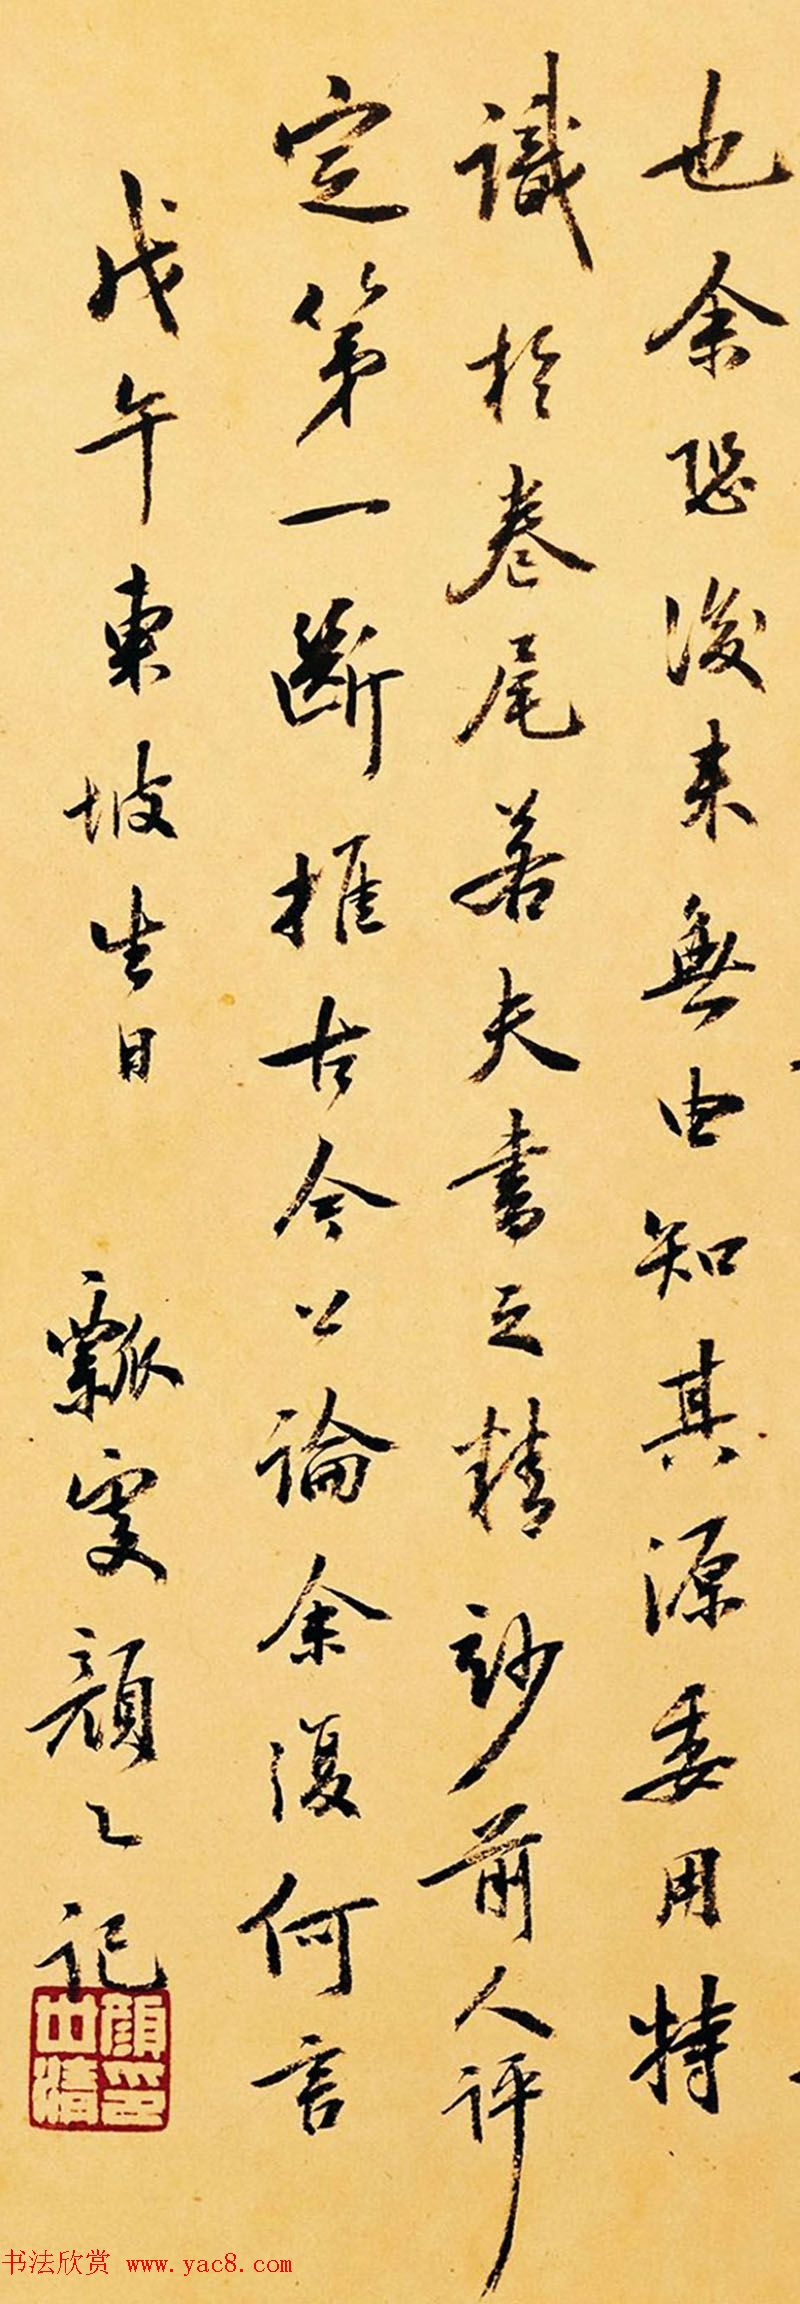 也余恐後来無由知其源委用特
識於卷尾若夫書之精妙前人評
定第一斷推古今公論余復何言
戊午東坡生日 瓢叟顔之記
顔世清印
书法欣赏 www.yac8.com